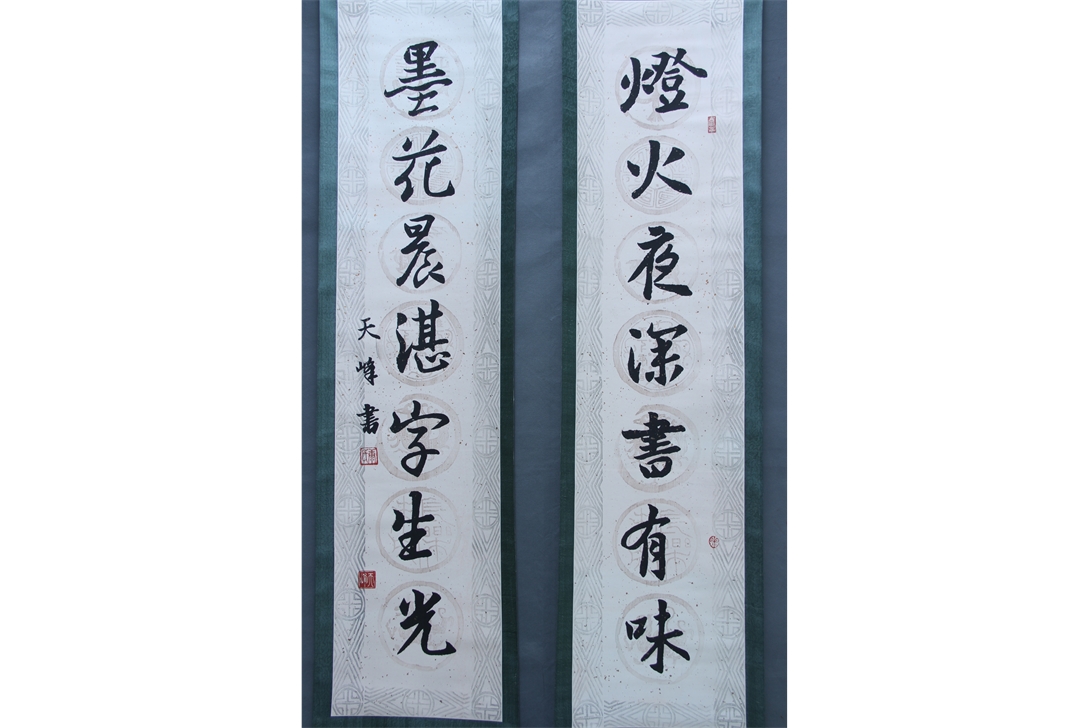 燈火夜深書有味
墨花晨湛字生光
天峰書